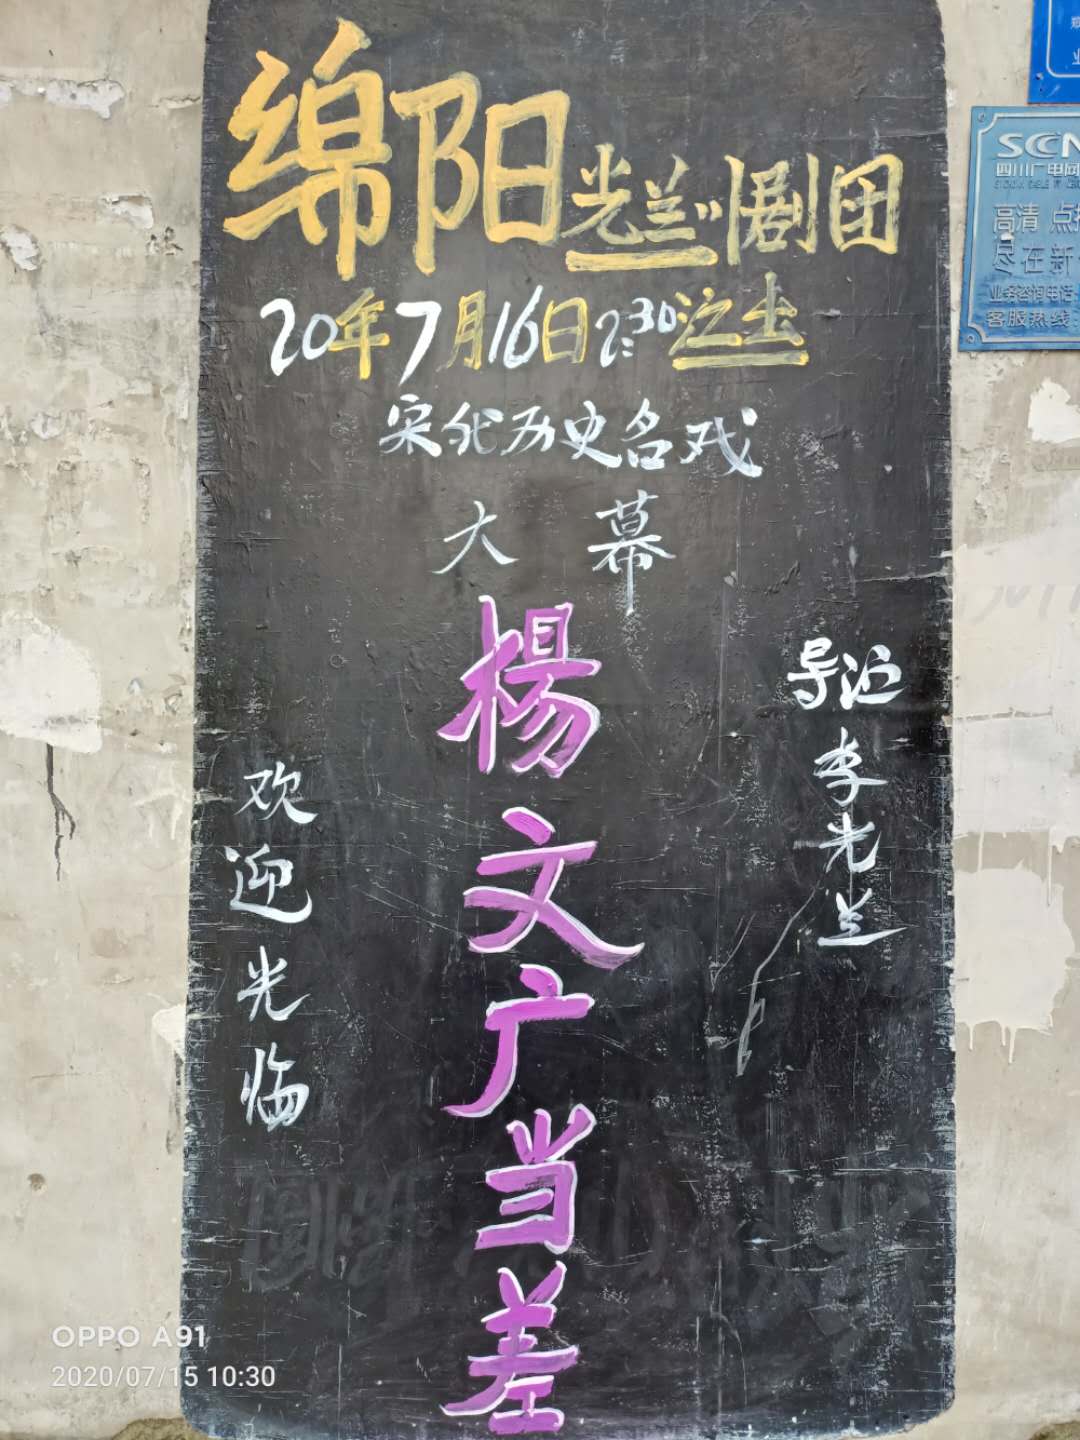 绵阳光兰川剧团
20年7月16日2:30演出
宋代历史名戏
大幕
楊文广当差
导演 李光兰
欢迎光临
SCN
四川广电网
高清 点
尽在新
业务咨询电话
客服热线
OPPO A91
2020/07/15 10:30